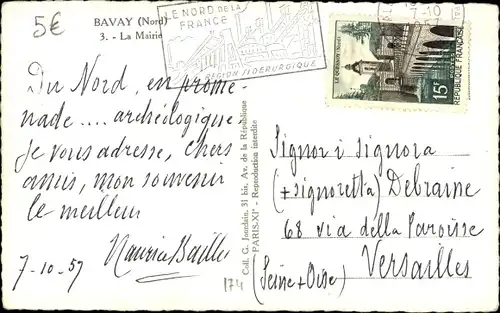 5€
BAVAY (Nord)
3. - La Mairie
LE NORD DE LA
FRANCE
RÉGION SIDÉRURGIQUE
10
LE QUESNOY (Nord)
15F
REPUBLIQUE FRANÇAISE
Du Nord, en prome-
nade.... archéologique,
je vous adresse, chers
amis, mon souvenir
le meilleur
Maurice Bailly
7-10-57
Coll. G. Jourdain, 31 bis, Av. de la République
PARIS-XIe - Reproduction interdite
174
Signor i Signora
(+signoretta) Debraine
68 via della Paroisse
Versailles
(Seine + Oise)